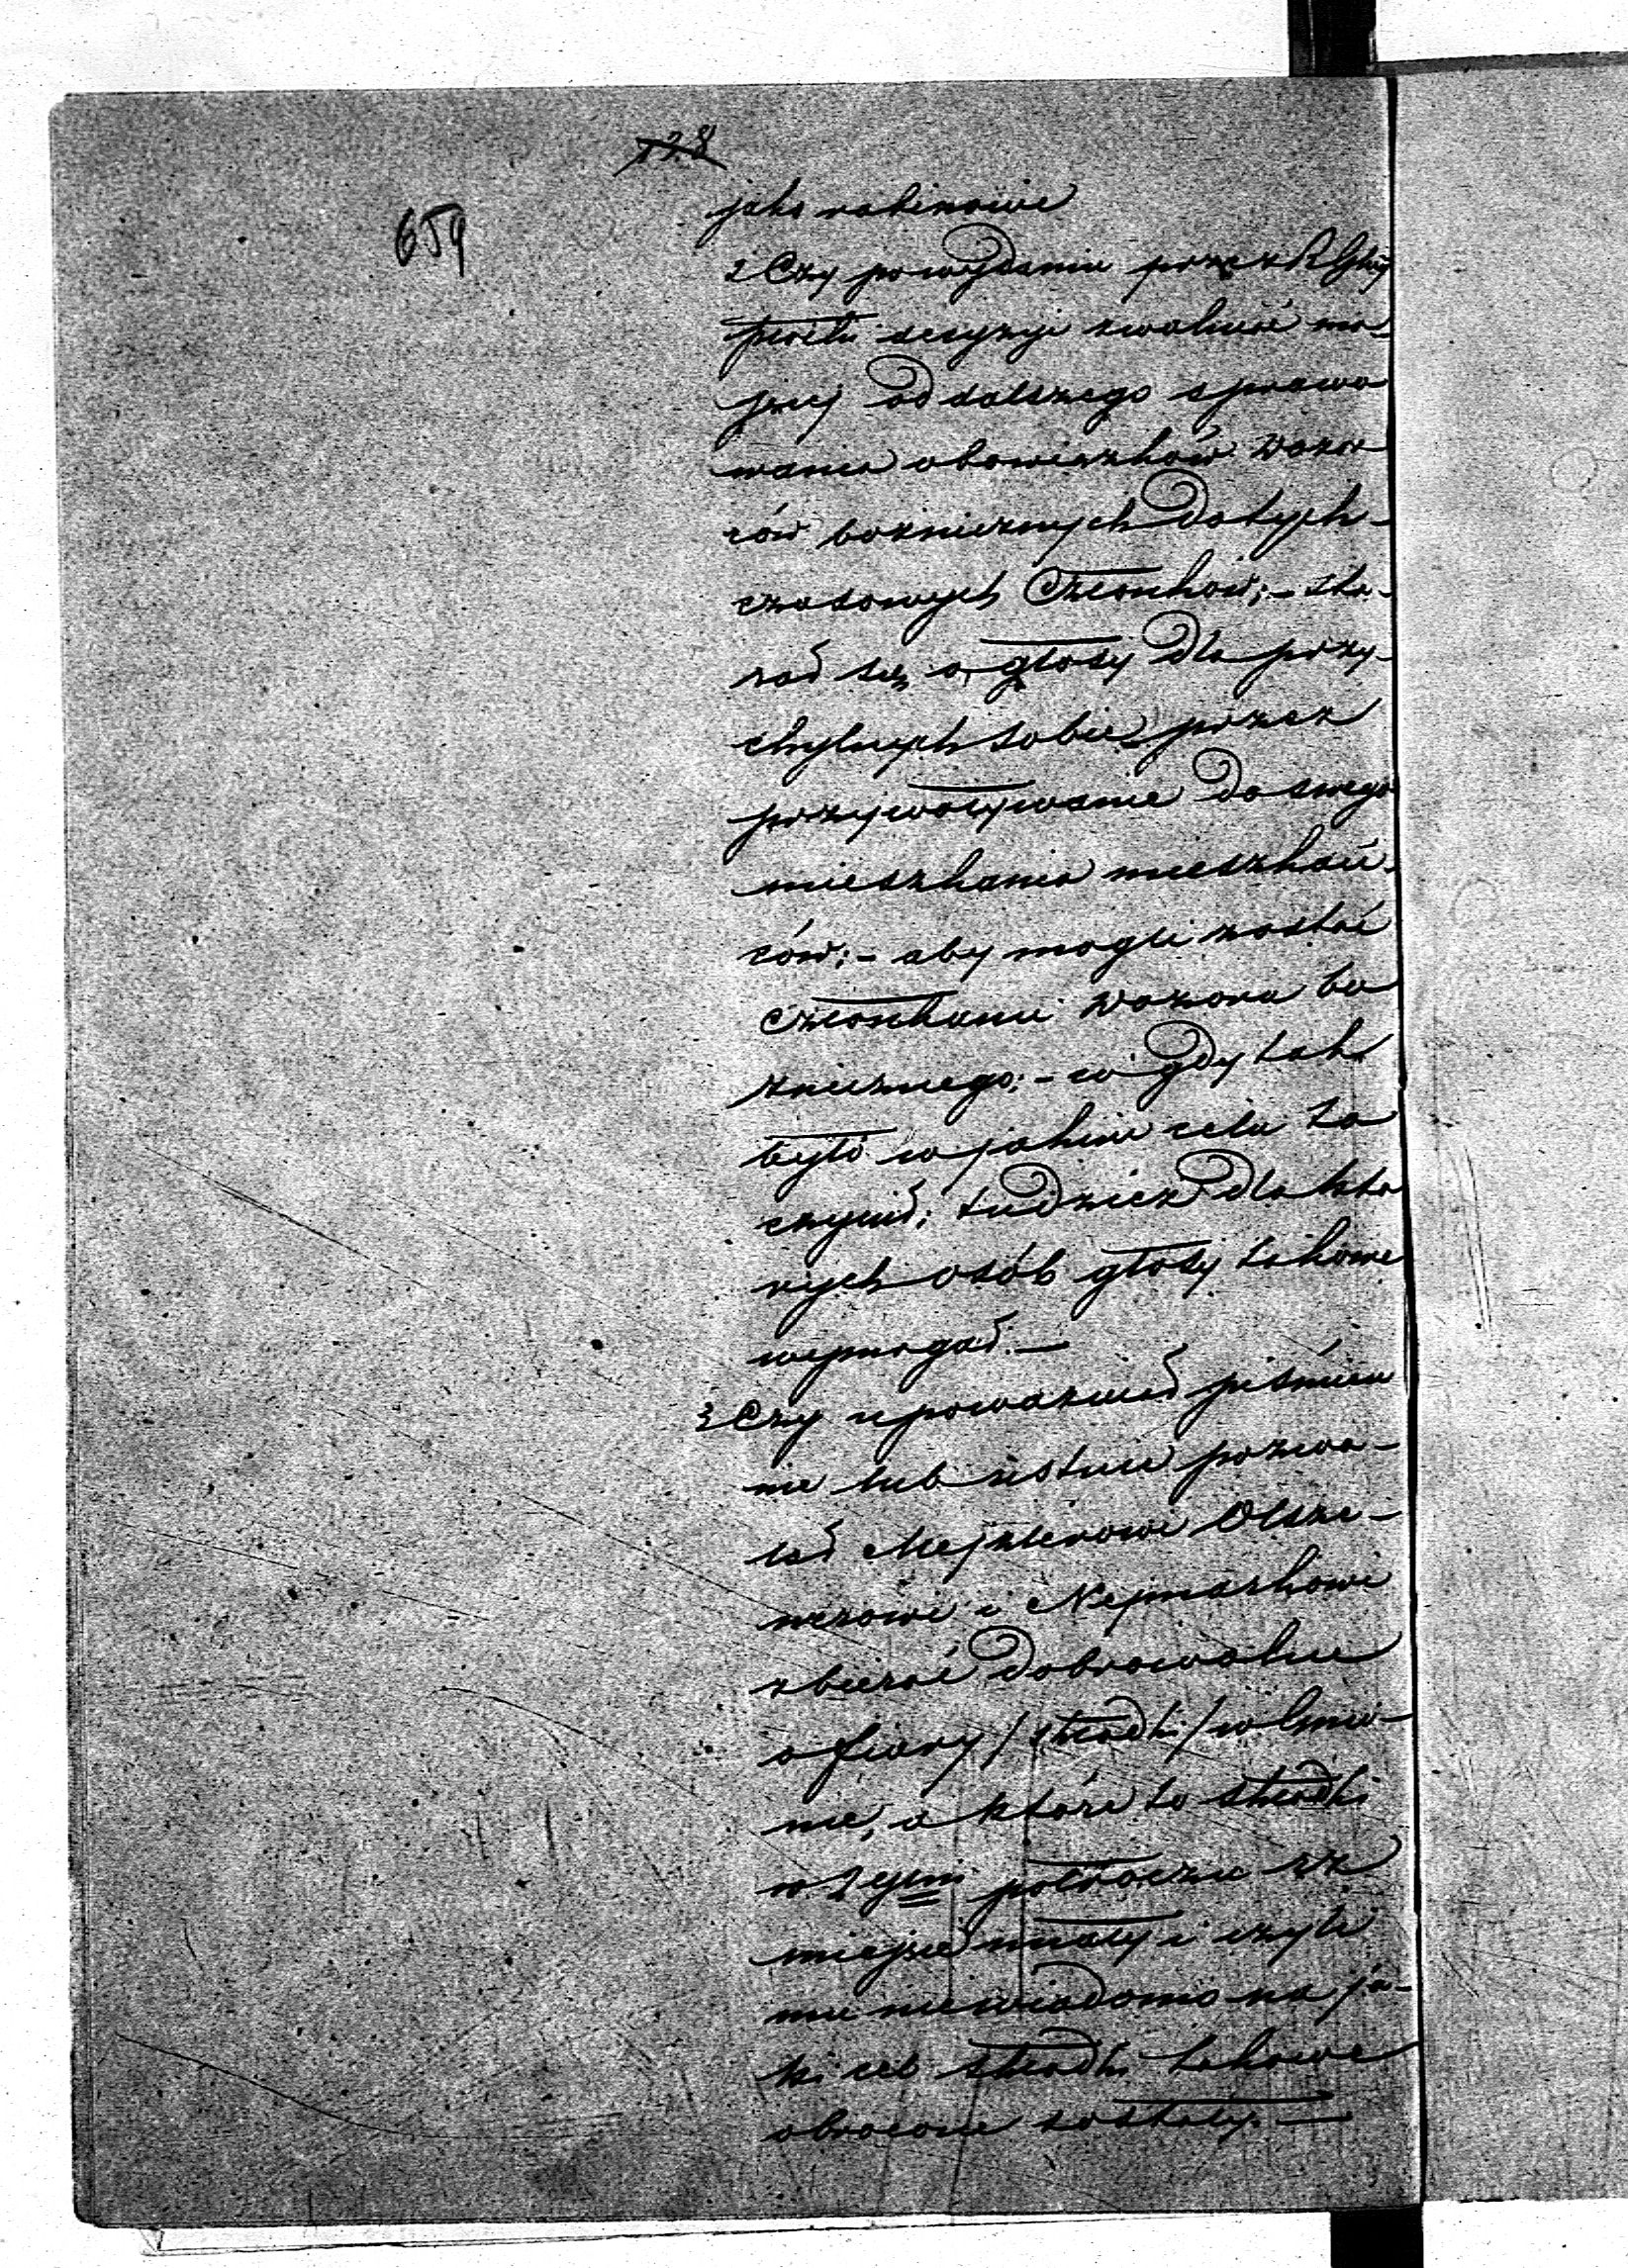 128
659
jako rabinowi
2 Czy po wydaniu przez R Gbny
powtu decyzyi zwalniać ma
jącej od dalszego sprawo
wania obowiązków Dozor
ców bożnicznych dotych-
czasowych Członków; - sta-
rał się o głosy dla przy-
chylnych sobie przez
przywoływanie do swego
mieszkania mieszkań-
ców; - aby mogli zostać
Członkami Dozoru bo
żnicznego; - i gdy tak
było w jakim celu to
czynił; tudzież dla któ
rych osób głosy takowe
wymagał. —
3 Czy upoważnił piśmien
nie lub ustnie pozwa-
lał Mejzlerowi Olsze-
nerowi i Nejmarkowi
zbierać dobrowolne
ofiary / składki / w Gmi-
nie, a które to składki
w 2gim półroczu rz
miejsce miały i czyli
mu niewiadomo na ja-
ki cel składki takowe
obrócone zostały. —